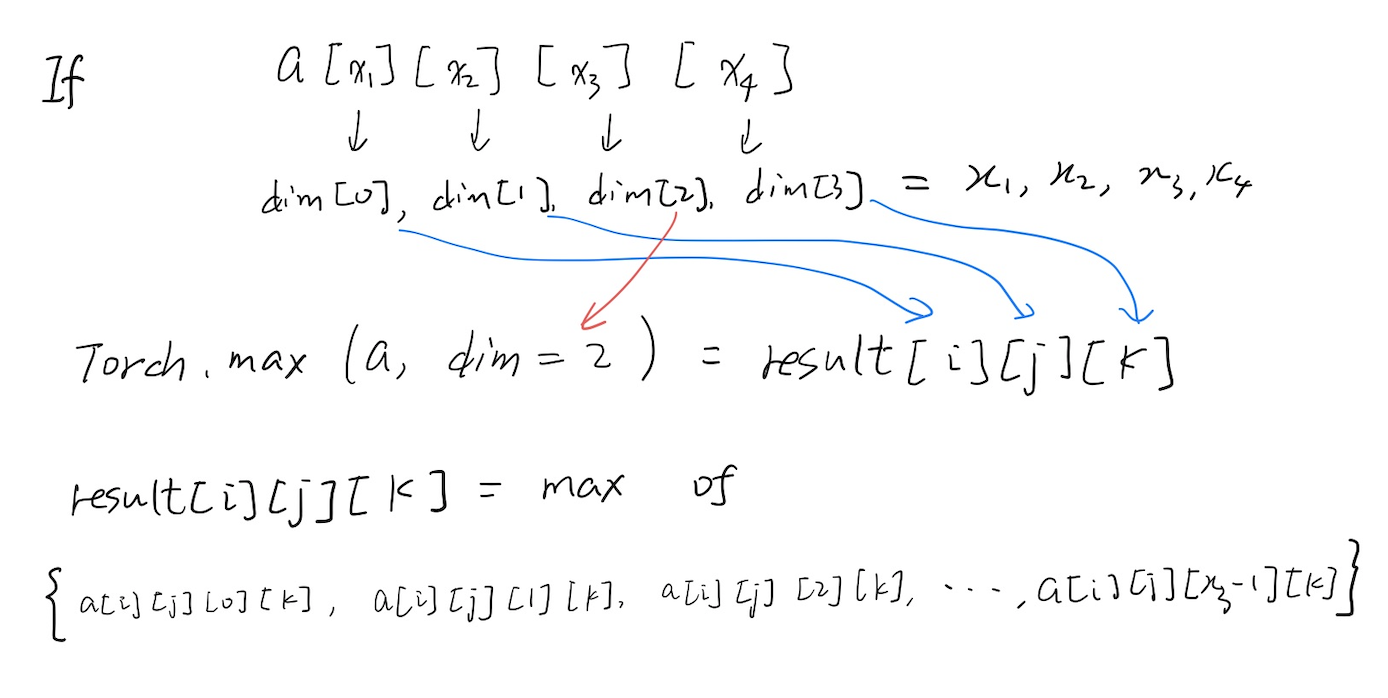 If a [x₁] [x₂] [x₃] [x₄]
↓ ↓ ↓ ↓
dim[0], dim[1], dim[2], dim[3] = x₁, x₂, x₃, x₄
Torch.max (a, dim = 2) = result[i][j][k]
result[i][j][k] = max of
{a[i][j][0][k], a[i][j][1][k], a[i][j][2][k], ..., a[i][j][x₃-1][k]}